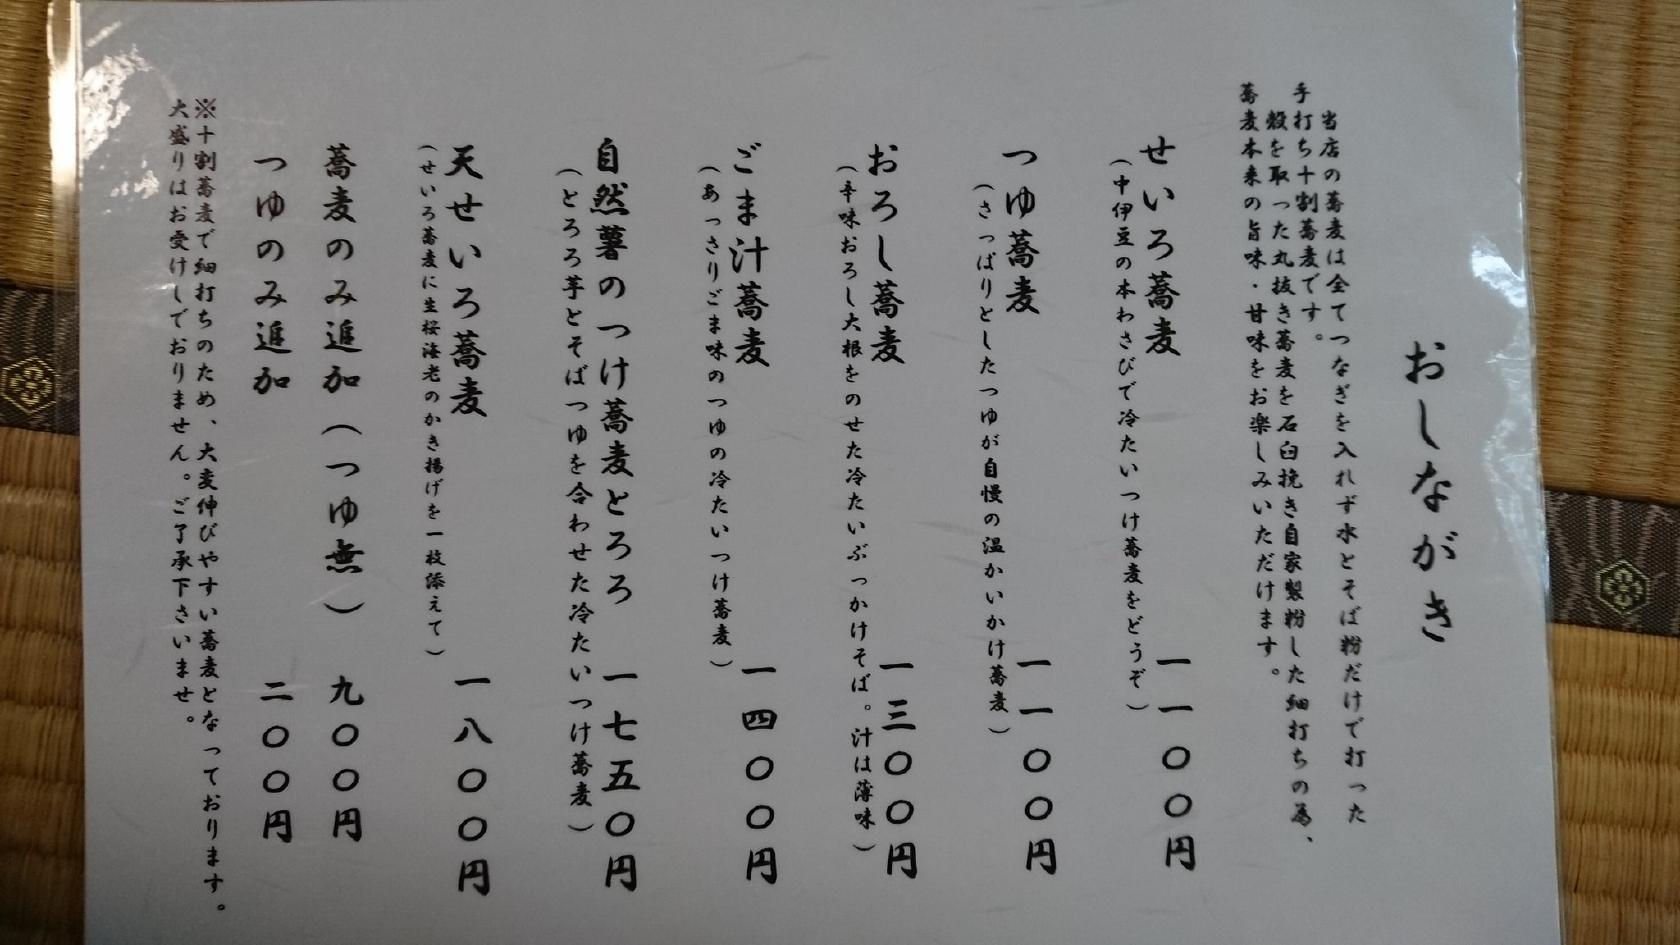 おしながき
当店の蕎麦は全てつなぎを入れず水とそば粉だけで打った
手打ち十割蕎麦です。
殻を取った丸抜き蕎麦を石臼挽き自家製粉した細打ちの為、
蕎麦本来の旨味・甘味をお楽しみいただけます。
せいろ蕎麦 一一〇〇円
（中伊豆の本わさびで冷たいつけ蕎麦をどうぞ）
つゆ蕎麦 一一〇〇円
（さっぱりとしたつゆが自慢の温かいかけ蕎麦）
おろし蕎麦 一三〇〇円
（辛味おろし大根をのせた冷たいぶっかけそば。汁は薄味）
ごま汁蕎麦 一四〇〇円
（あっさりごま味のつゆの冷たいつけ蕎麦）
自然薯のつけ蕎麦とろろ 一七五〇円
（とろろ芋とそばつゆを合わせた冷たいつけ蕎麦）
天せいろ蕎麦 一八〇〇円
（せいろ蕎麦に生桜海老のかき揚げを一枚添えて）
蕎麦のみ追加（つゆ無） 九〇〇円
つゆのみ追加 二〇〇円
※十割蕎麦で細打ちのため、大変伸びやすい蕎麦となっております。
大盛りはお受けしておりません。ご了承下さいませ。